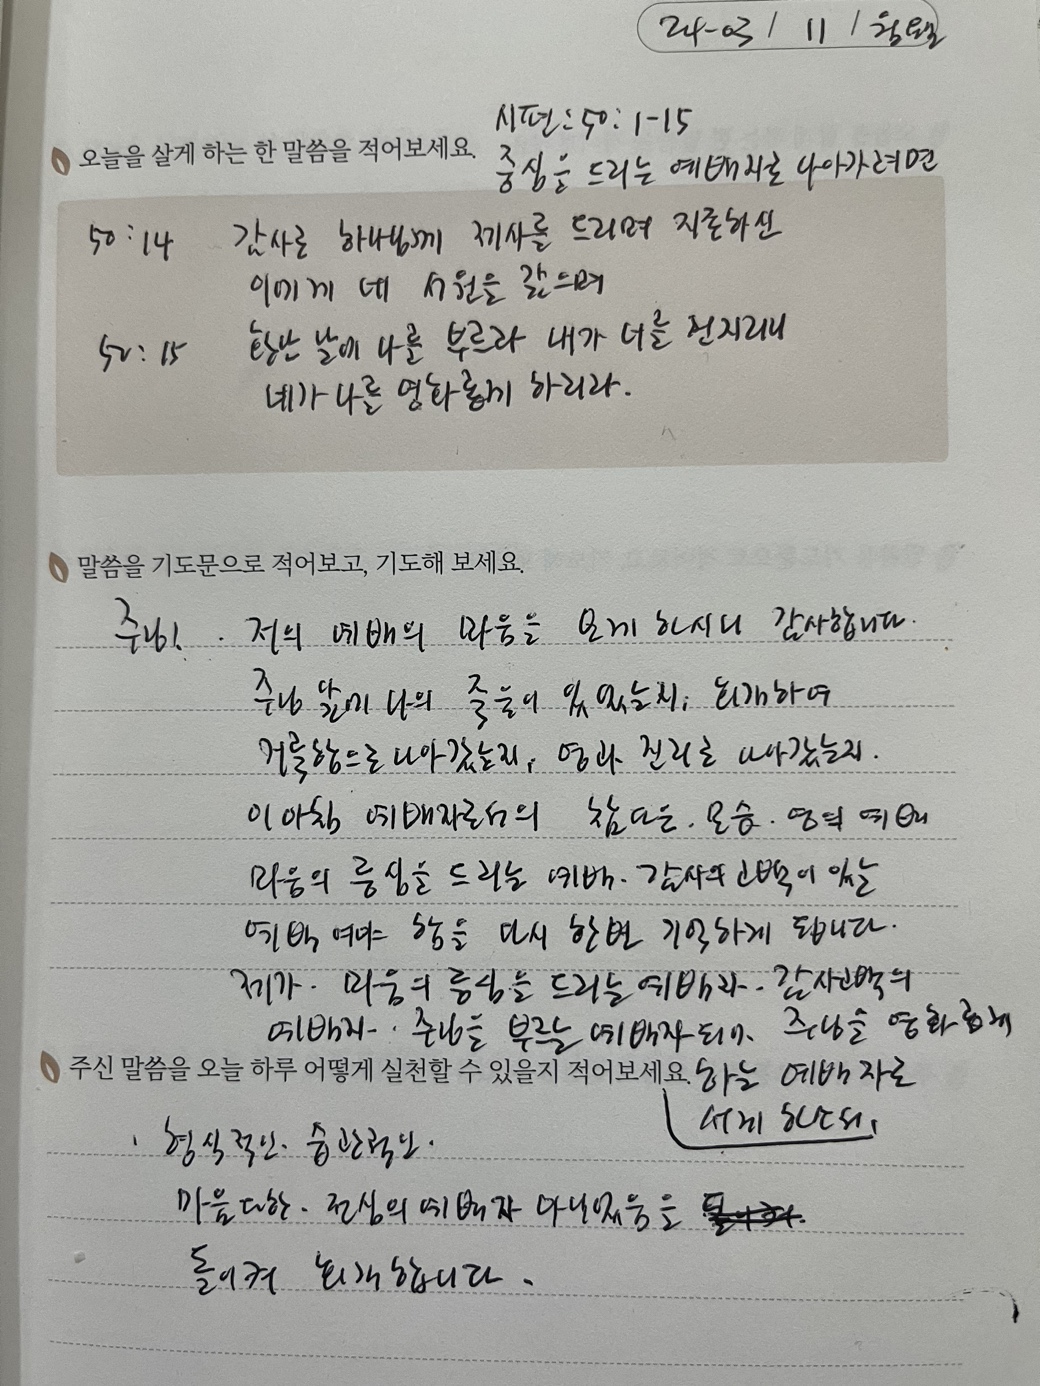 24-03 / 11 / 월요일
시편: 50: 1-15
오늘을 살게 하는 한 말씀을 적어보세요.
중심을 드리는 예배자로 나아가려면
50:14 감사로 하나님께 제사를 드리며 지존하신
이에게 네 서원을 갚으며
50:15 환난 날에 나를 부르라 내가 너를 건지리니
네가 나를 영화롭게 하리라.
말씀을 기도문으로 적어보고, 기도해 보세요.
주님! . 저의 예배의 마음을 보게 하시니 감사합니다.
주님 앞에 나의 죽음이 있었는지, 회개하여
거룩함으로 나아갔는지, 영과 진리로 나아갔는지.
이 아침 예배자로서의 참다운. 모습. 영의 예배
마음의 중심을 드리는 예배. 감사의 고백이 있는
예배 여야 함을 다시 한번 기억하게 됩니다.
제가. 마음의 중심을 드리는 예배와. 감사고백의
예배자. 주님을 부르는 예배자 되어. 주님을 영화롭게
주신 말씀을 오늘 하루 어떻게 실천할 수 있을지 적어보세요.
하는 예배 자로
서게 하소서,
형식적인. 습관적인.
마음 다한. 전심의 예배자 아니었음을
돌이켜 회개합니다.